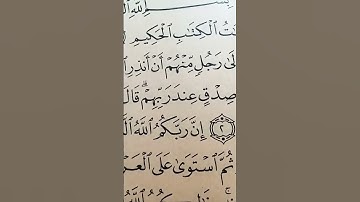 بِسْمِ ٱللَّهِ
ٱلْكِتَٰبِ ٱلْحَكِيمِ
رَجُلٍ مِّنْهُمْ أَنْ أَنذِرِ
صِدْقٍ عِندَ رَبِّهِمْ ۗ قَالَ
۝٢ إِنَّ رَبَّكُمُ ٱللَّهُ
ثُمَّ ٱسْتَوَىٰ عَلَى
ٱللَّهُ